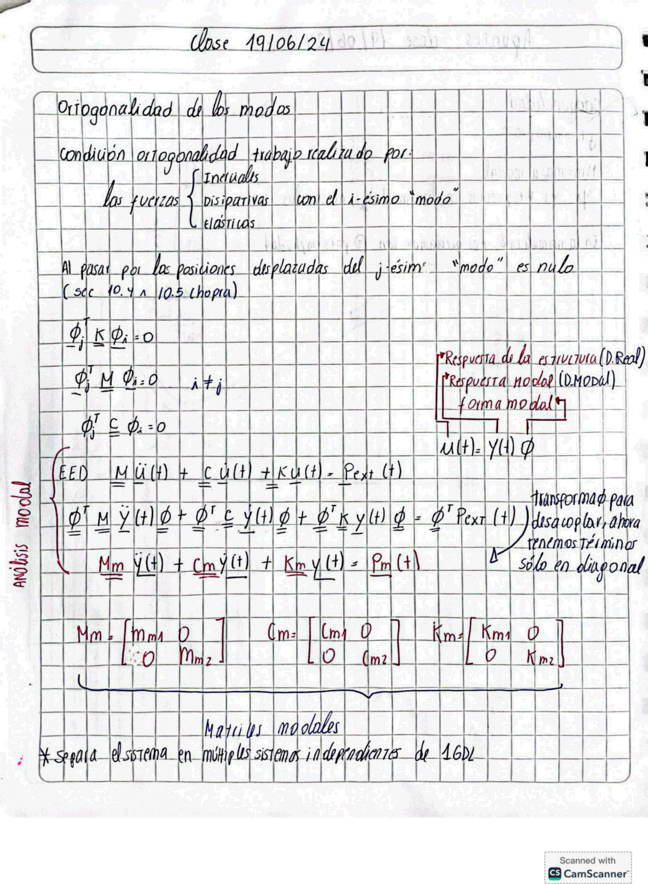 Clase 19/06/24
Ortogonalidad de los modos
condición ortogonalidad trabajo realizado por:
las fuerzas { Inerciales
Disipativas con el i-ésimo "modo"
Elásticas
Al pasar por las posiciones desplazadas del j-ésim "modo" es nulo
(sec 10.4 ∧ 10.5 Chopra)
ϕjᵀ K ϕi = 0
ϕjᵀ M ϕi = 0 i ≠ j
ϕjᵀ C ϕi = 0
Respuesta de la estructura (D.Real)
Respuesta modal (D.MODAL)
forma modal
u(t) = y(t) ϕ
Análisis modal
EED M ü(t) + C u̇(t) + K u(t) = Pext (t)
ϕᵀ M ÿ(t) ϕ + ϕᵀ C ẏ(t) ϕ + ϕᵀ K y(t) ϕ = ϕᵀ Pext (t)
transformaϕ para
desacoplar, ahora
tenemos términos
sólo en diagonal
Mm ÿ(t) + Cm ẏ(t) + Km y(t) = Pm (t)
Mm = [mm1 0
0 Mm2]
Cm = [Cm1 0
0 Cm2]
Km = [Km1 0
0 Km2]
Matrices modales
* separa el sistema en múltiples sistemas independientes de 1GDL
Scanned with
CS CamScanner